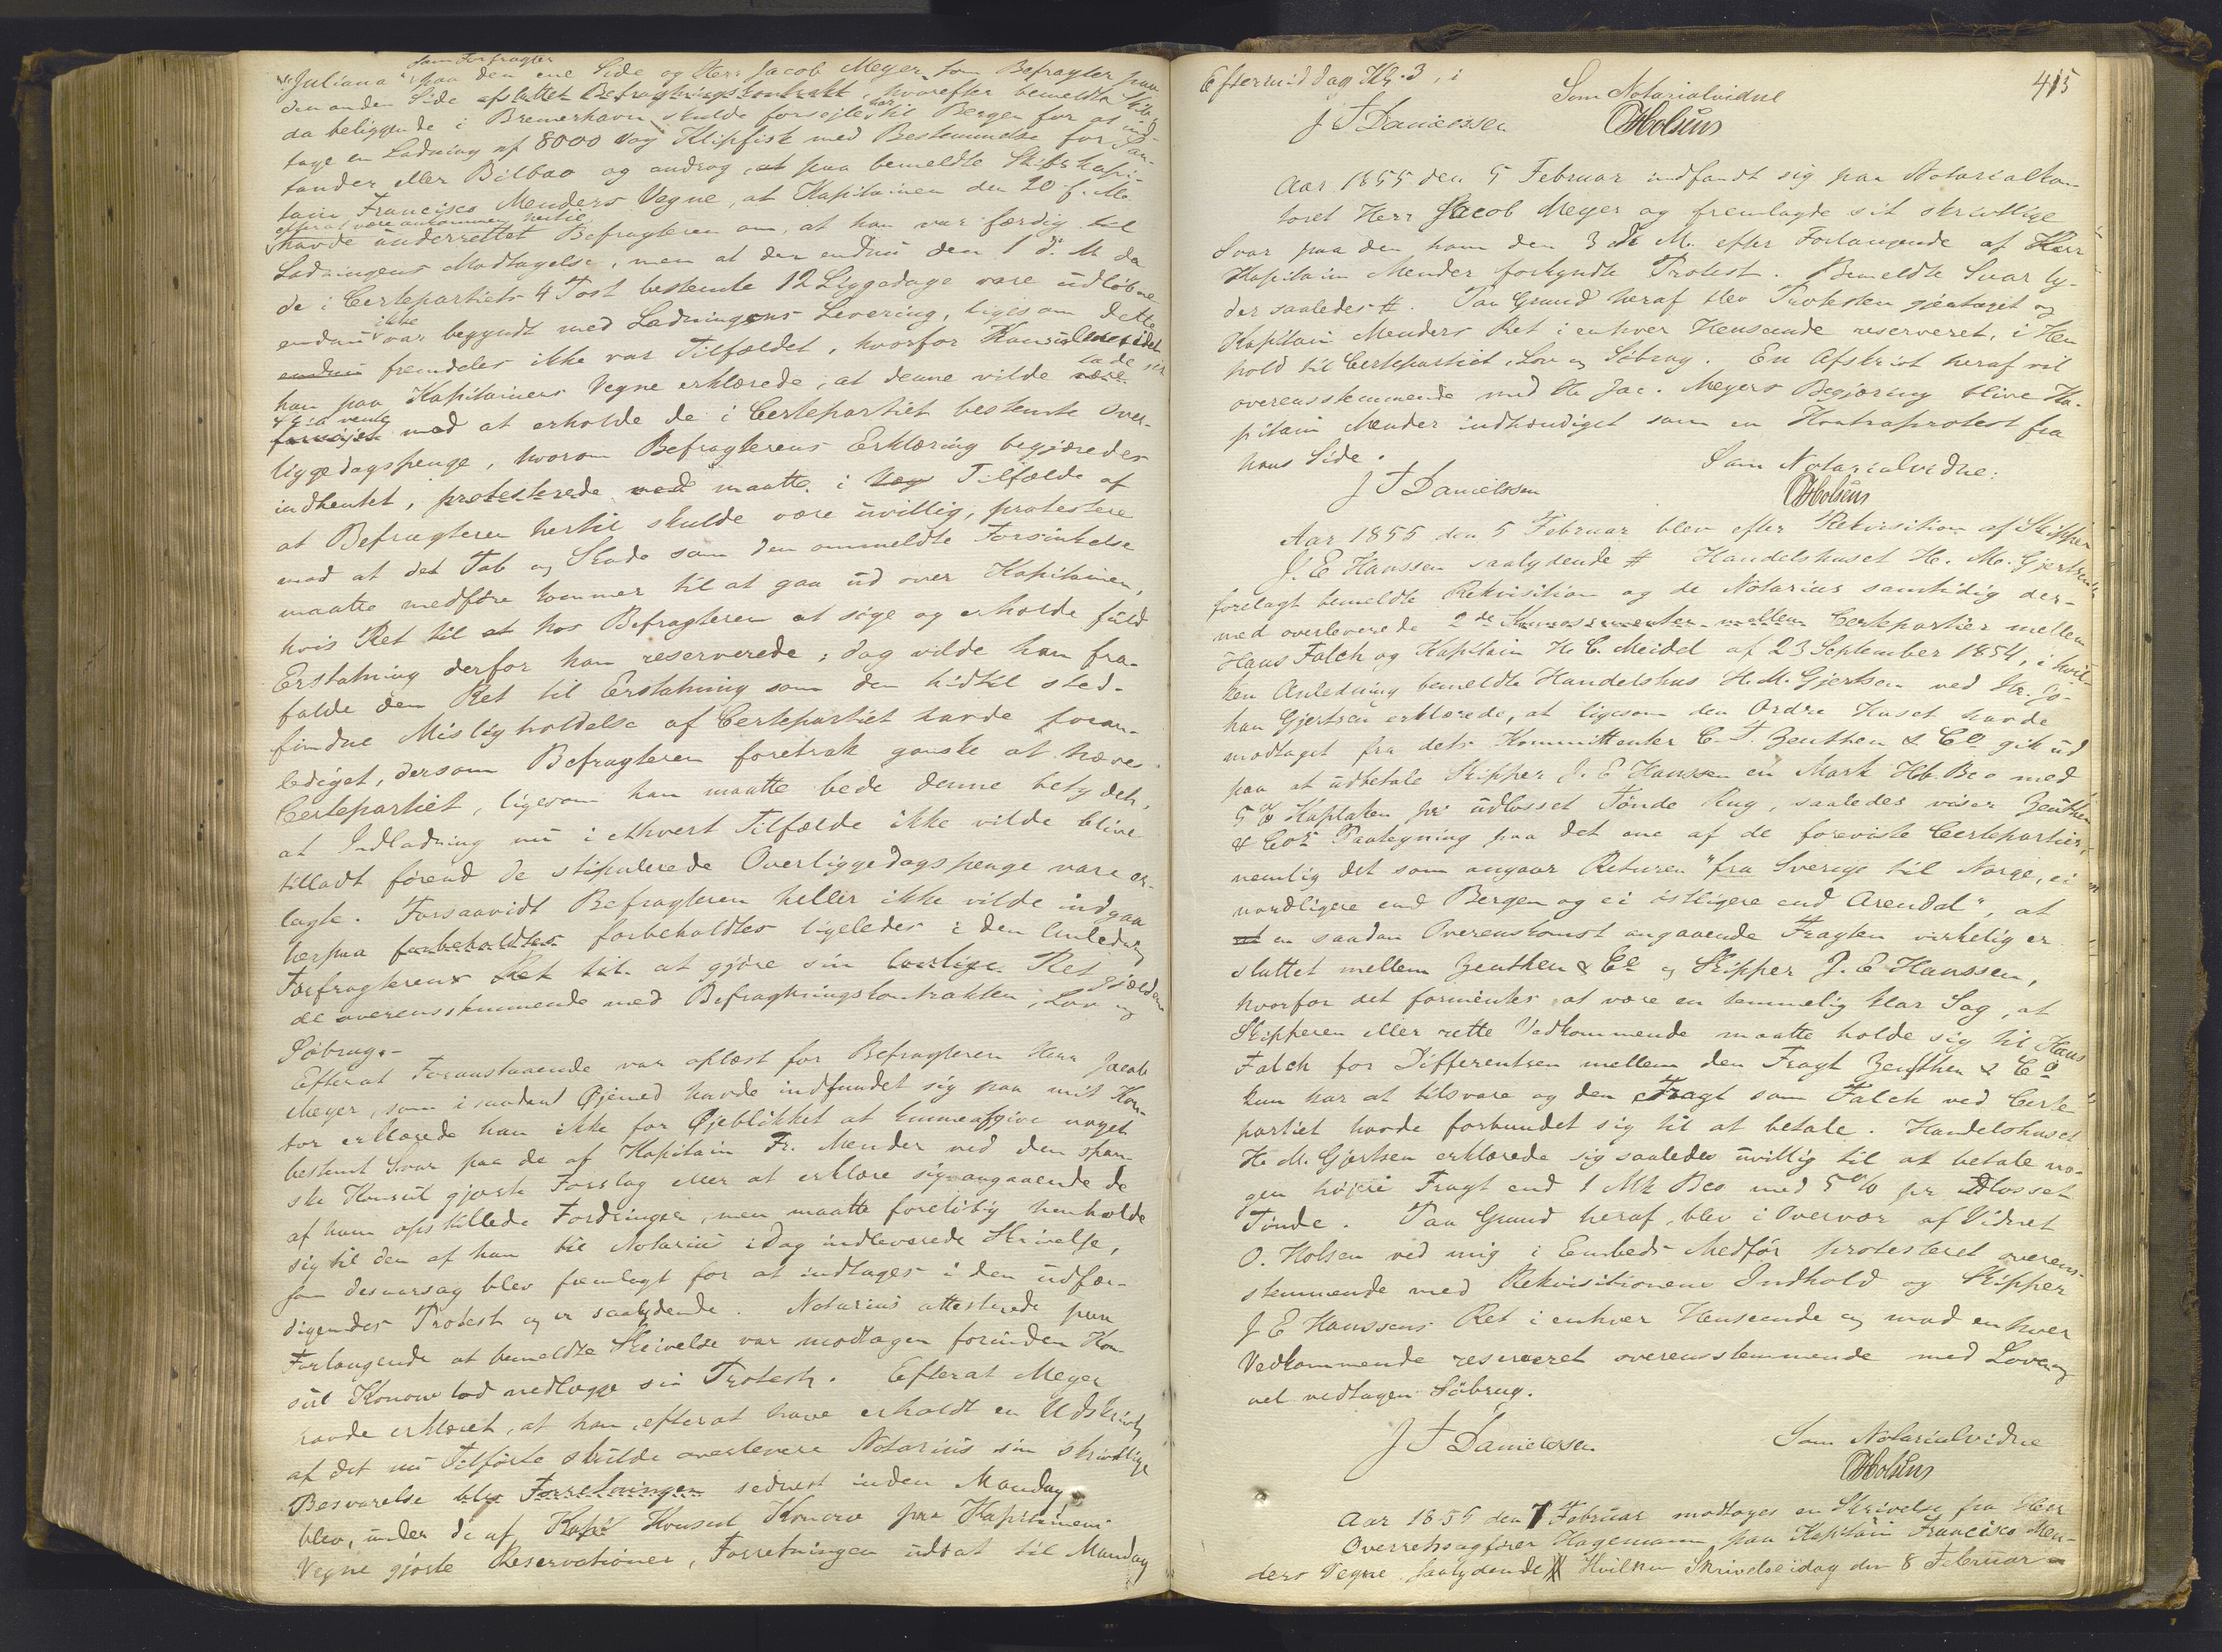 som Forfragter
"Juliana" paa den ene Side og Herr Jacob Meyer som Befragter paa
den anden Side afsluttet Befragtningskontrakt, hvorefter bemeldte Skib
da beliggende i Bremerhavn skulde forsejlet til Bergen for at ind-
tage en Ladning af 8000 Vog Klipfisk med Bestemmelse for San-
tander eller Bilbao og androg, at paa bemeldte Skibskapi-
tain Francisco Menders Vegne, at Kapitainen den 20 f. M.
efterat være ankommen hertil
havde underrettet Befragteren om, at han var færdig til
Ladningens Modtagelse, men at der endnu den 1 d. M. da
de i Certepartiets 4 Post bestemte 12 Liggedage vare udløbne
ikke
endnu var begyndt med Ladningens Levering, ligesom dette
endnu fremdeles ikke var Tilfældet, hvorfor Konsulen
han paa Kapitainens Vegne erklærede, at denne vilde være
lade sig
nøie
fornøjet med at erholde de i Certepartiet bestemte Over-
liggedagspenge, hvorom Befragterens Erklæring begjæredes
indhentet, protesterede ved maatte i Tilfælde af
at Befragteren hertil skulde være uvillig, protestere
mod at det Tab og Skade som den ommeldte Forsinkelse
maatte medføre kommer til at gaa ud over Kapitainen,
hvis Ret til at hos Befragteren at søge og erholde fuld
Erstatning derfor han reserverede; dog vilde han fra-
falde den Ret til Erstatning som den hidtil sted-
findne Misligholdelse af Certepartiet havde foran-
lediget, dersom Befragteren foretrak ganske at hæve
Certepartiet, ligesom han maatte bede denne betydet,
at Indladning nu i ethvert Tilfælde ikke vilde blive
tilladt førend de stipulerede Overliggedagspenge vare er-
lagte. Forsaavidt Befragteren heller ikke vilde indgaa
herpaa forbeholdtes forbeholdtes ligeledes i den Anledning
Forfragterens Ret til at gjøre sin lovlige Ret gjælden-
de overensstemmende med Befragtningskontrakten, Lov og
Søbrug.-
Efterat Foranstaaende var oplæst for Befragteren Herr Jacob
Meyer, som i saadant Øjemed havde indfundet sig paa mit Kon-
tor erklærede han ikke for Øjeblikket at kunne afgive noget
bestemt Svar paa de af Kapitain Fr. Mender ved den span-
ske Konsul gjorte Forslag eller at erklære sig angaaende de
af ham opstillede Fordringer, men maatte foreløbig henholde
sig til den af han til Notarius idag indleverede Skrivelse,
som desaarsag blev fremlagt for at indtages i den udfær-
digendes Protest og er saalydende. Notarius attesterede paa
Forlangende at bemeldte Skrivelse var modtagen forinden Kon-
sul Konow lod nedlægge sin Protest. Efterat Meyer
havde erklæret, at han, efterat have erholdt en Udskrivt
af det nu Tilførte skulde overlevere Notarius sin skrivtlige
Besvarelse blev Forretningen sednest inden Mandag
blev, under de af Konsul Konow paa Kapitainens
Vegne gjorte Reservationer, Forretningen udsat til Mandag
415
Eftermiddag Kl. 3, i
Som Notarialvidne
J F Danielssen OHolsen
Aar 1855 den 5 Februar indfandt sig paa Notarialkon-
toret Herr Jacob Meyer og fremlagde sit skrivtlige
Svar paa den ham den 3 de M. efter Forlangende af Herr
Kapitain Mender forkyndte Protest. Bemeldte Svar ly-
der saaledes #. Paa Grund heraf blev Protesten gjentaget og
Kapitain Menders Ret i enhver Henseende reserveret, i Hen-
hold til Certepartiet, Lov og Søbrug. En Afskrivt heraf vil
overensstemmende med Hr Jac. Meyers Begjæring blive Ka-
pitain Mender indhændiget som en Kontraprotest fra
hans Side.
Som Notarialvidne:
J F Danielssen OHolsen
Aar 1855 den 5 Februar blev efter Rekvisition af Skipper
J. E Hanssen saalydende # Handelshuset H. M. Gjertsen
forelagt bemeldte Rekvisition og de Notarius samtidig der-
med overleverede 2de Certepartier mellem
Hans Falch og Kapitain H. C. Meidel af 23 September 1854, i hvil-
ken Anledning bemeldte Handelshus H. M. Gjertsen ved Hr. Jo-
han Gjertsen erklærede, at ligesom den Ordre Huset havde
modtaget fra dets Kommittenter C. F. Zeuthen & Co gik ud
paa at udbetale Skipper J. E Hanssen en Mark Hb. Bco med
5 % Kaplaken pr udlosset Tønde Rug, saaledes viser Zeuthen
& Co's Paategning paa det ene af de foreviste Certepartier,
nemlig det som angaar Returen "fra Sverige til Norge, ei
nordligere end Bergen og ei østligere end Arendal", at
en saadan Overenskomst angaaende Fragten virkelig er
sluttet mellem Zeuthen & Co og Skipper J. E Hanssen,
hvorfor det formentes at være en temmelig klar Sag, at
Skipperen eller rette Vedkommende maatte holde sig til Hans
Falch for Differentsen mellem den Fragt Zeuthen & Co
kun har at tilsvare og den Fragt som Falch ved Certe-
partiet havde forbundet sig til at betale. Handelshuset
H. M. Gjertsen erklærede sig saaledes uvillig til at betale no-
gen højere Fragt end 1 Mk Bco med 5 % pr udlosset
Tønde. Paa Grund heraf, blev i Overvær af Vidnet
O. Holsen ved mig i Embeds Medfør protesteret overens-
stemmende med Rekvisitionens Indhold og Skipper
J E Hanssens Ret i enhver Henseende og mod enhver
Vedkommende reserveret overensstemmende med Lov og
vel vedtagen Søbrug.
J F Danielssen Som Notarialvidne
OHolsen
Aar 1855 den 7 Februar modtoges en Skrivelse fra Herr
Overretssagfører Hagemann paa Kapitain Francisco Men-
ders Vegne saalydende # Hvilken Skrivelse idag den 8 Februar